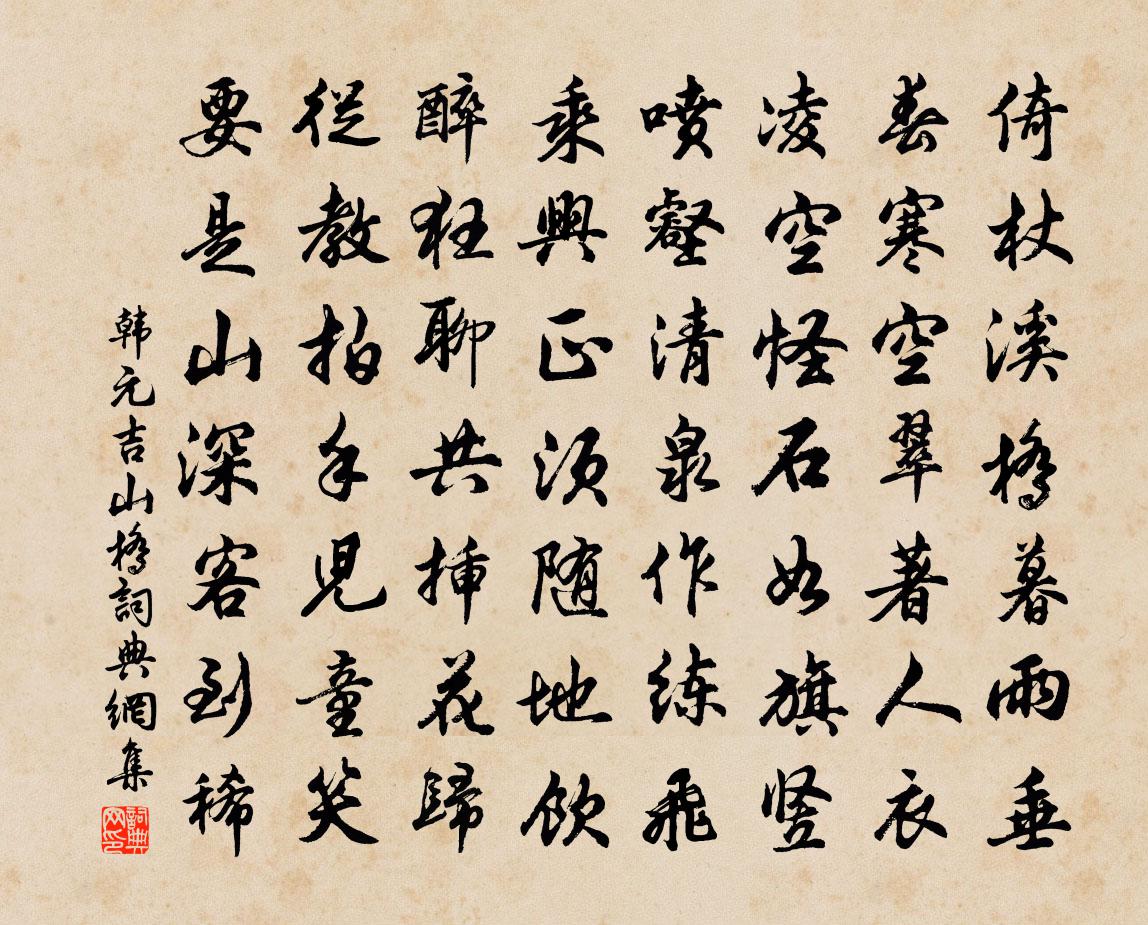 倚杖溪橋暮雨垂
春寒空翠著人衣
凌空怪石如旗竪
噴壑清泉作練飛
乘興正須随地飲
醉狂聊共挿花歸
從教拍手兒童笑
要是山深客到稀
韩元吉山橋詞典網集
詞典网印